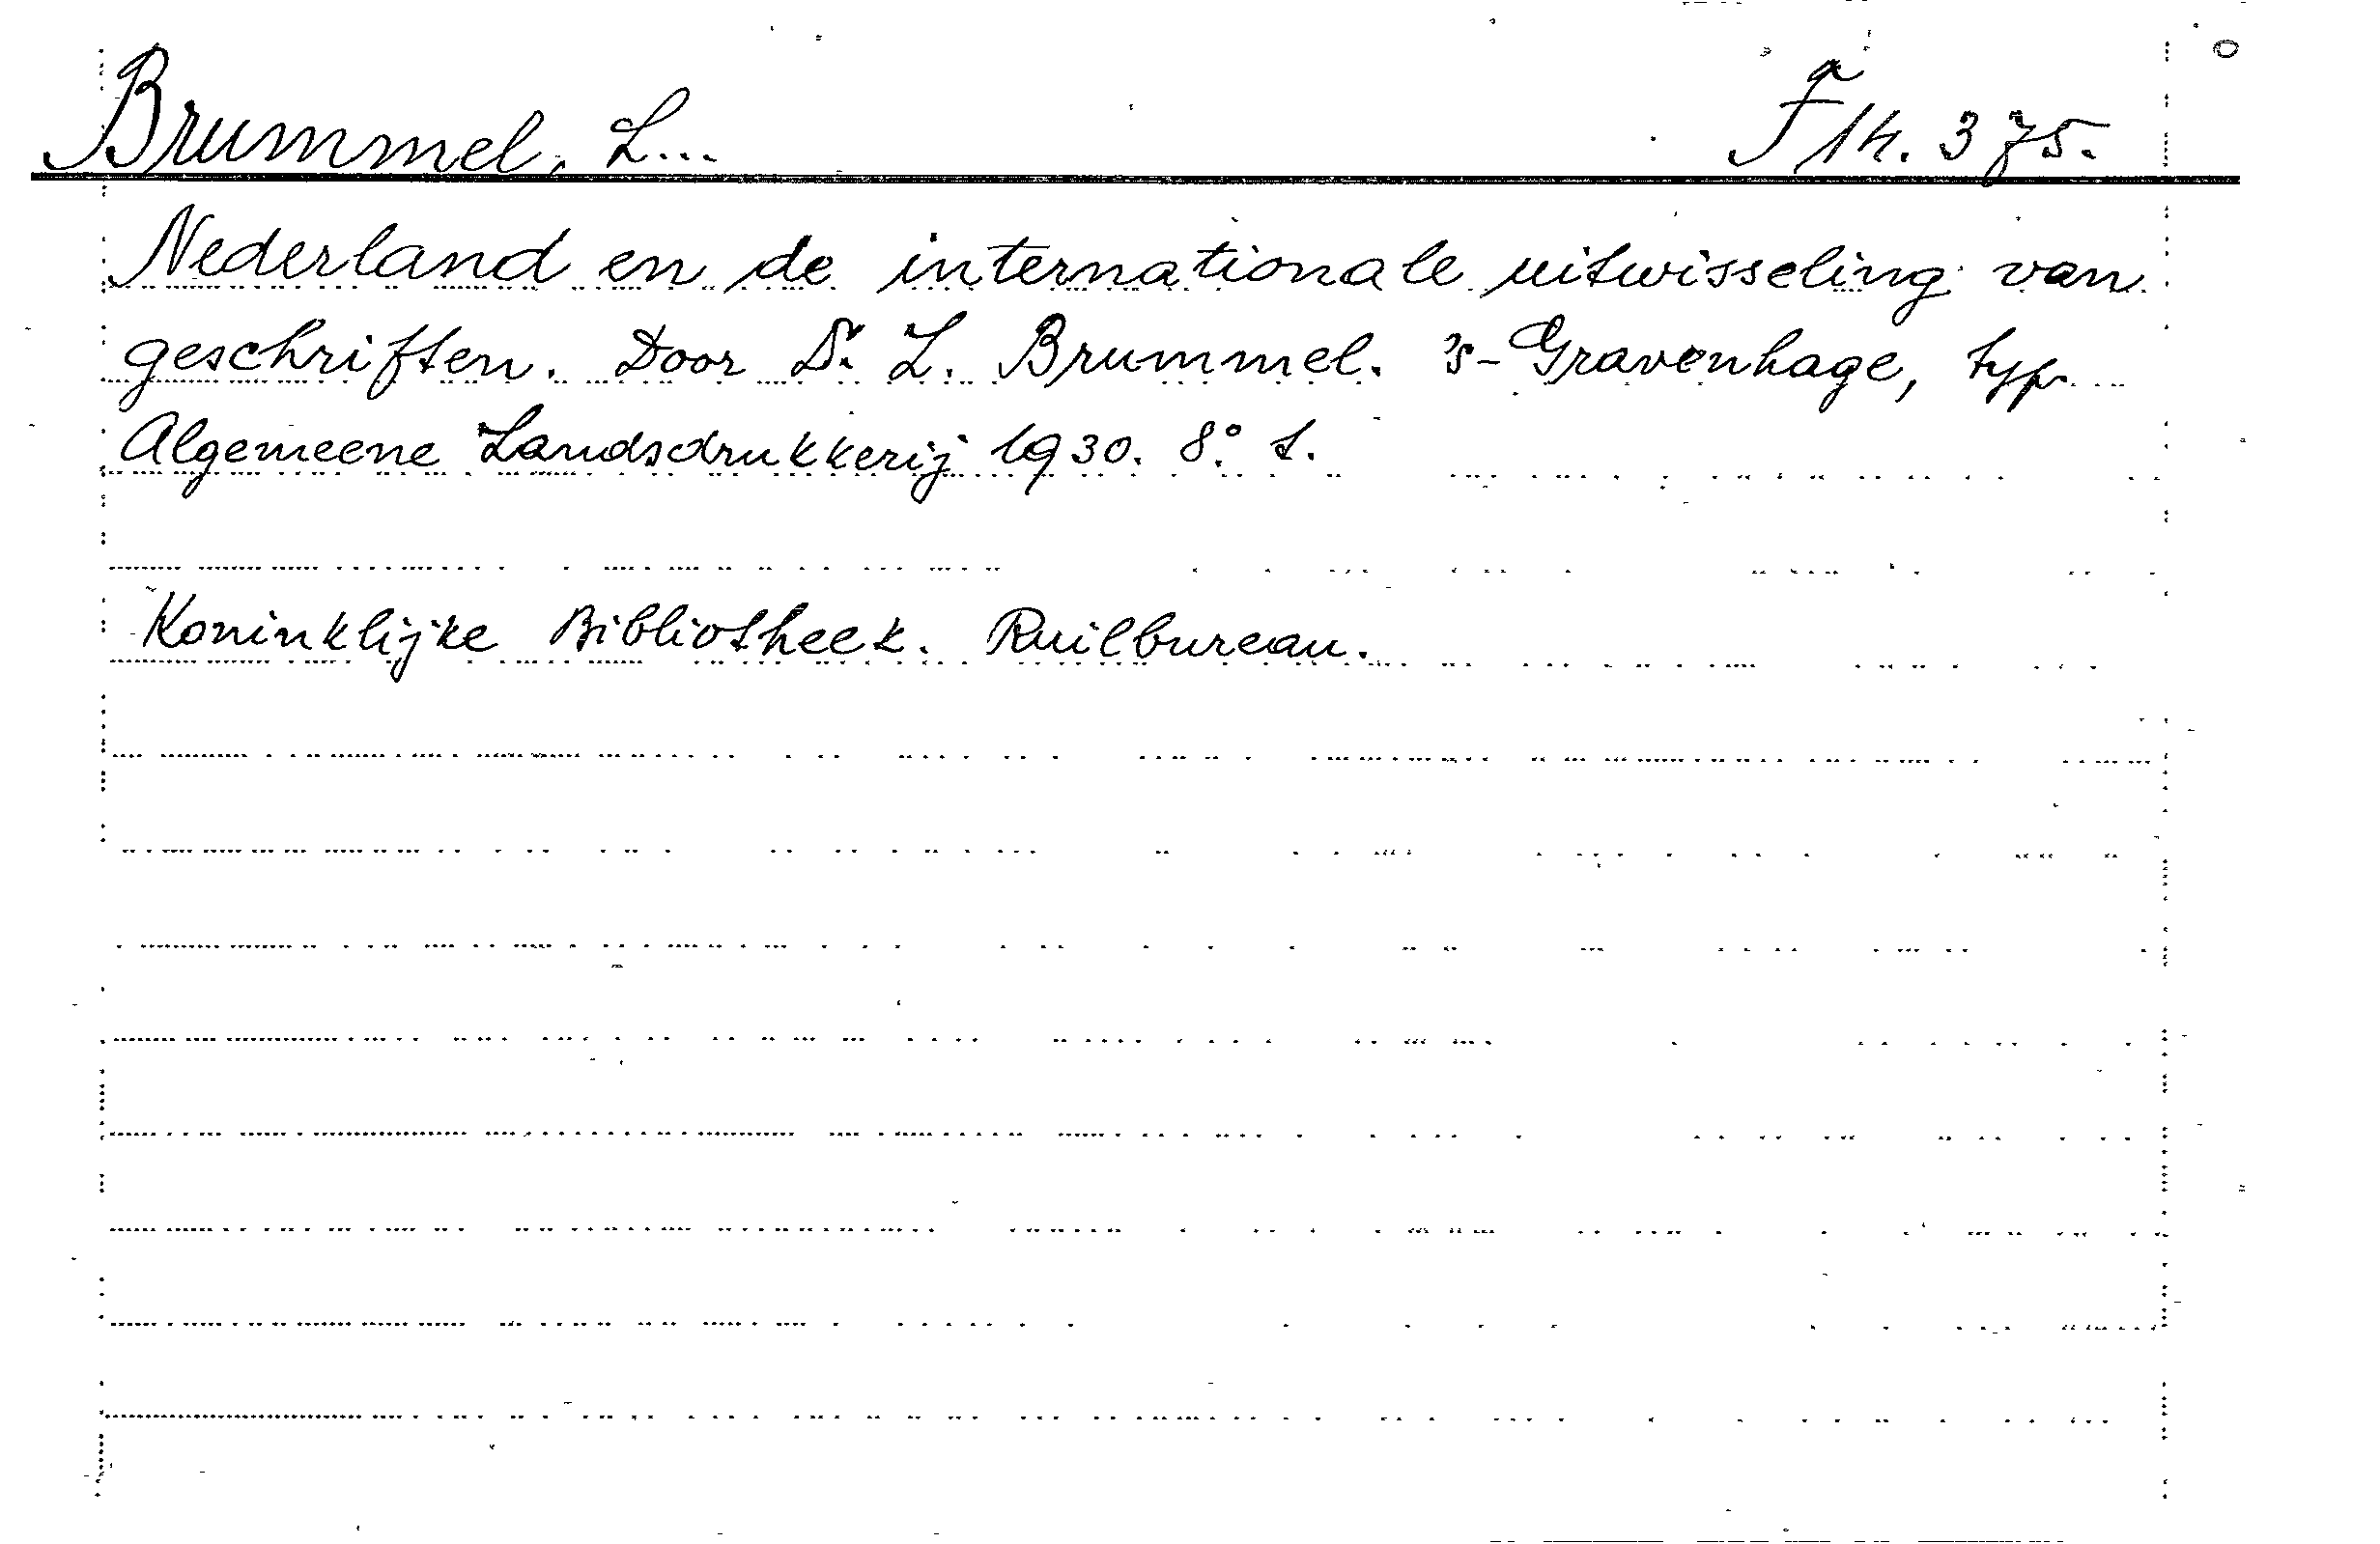 Brummel, L... F 14. 375.
Nederland en de internationale uitwisseling van
geschriften. Door Dr. L. Brummel. 's-Gravenhage, typ.
Algemeene Landsdrukkerij 1930. 8.° 1.
Koninklijke Bibliotheek. Ruilbureau.